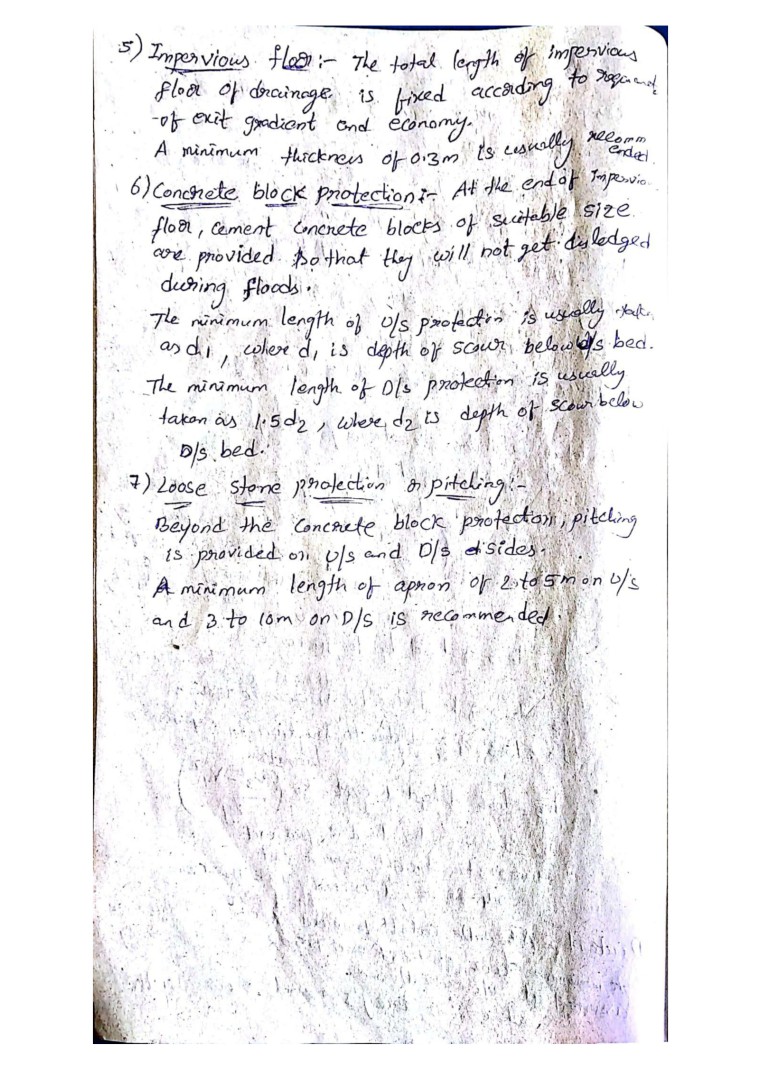 5) Impervious floor:- The total length of impervious
floor of drainage is fixed according to
of exit gradient and economy.
A minimum thickness of 0.3m is usually recomm
ended
6) Concrete block protection:- At the end of Impervio
floor, cement concrete blocks of suitable size
are provided so that they will not get disledged
during floods.
The minimum length of U/s protection is usually
as d1, where d1 is depth of scour below bed.
The minimum length of D/s protection is usually
taken as 1.5d2, where d2 is depth of scour below
D/s bed.
7) Loose stone protection or pitching:-
Beyond the concrete block protection, pitching
is provided on U/s and D/s sides.
A minimum length of apron of 2 to 5m on U/s
and 3 to 10m on D/s is recommended.